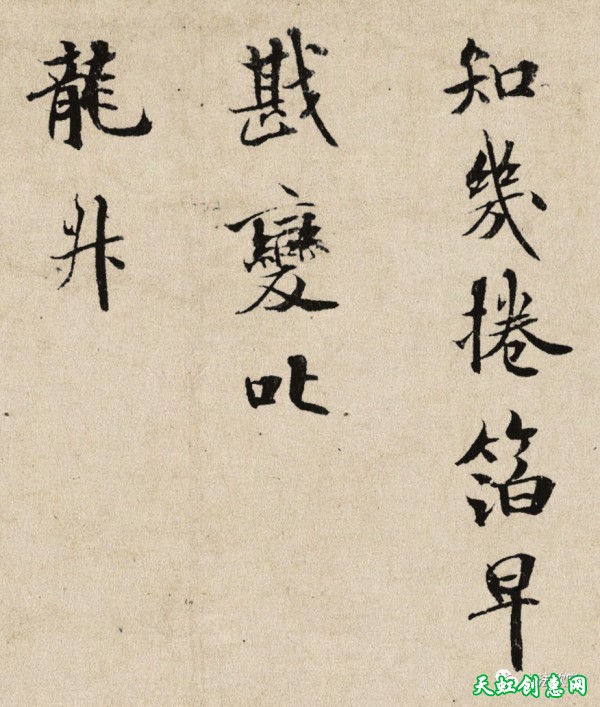 知幾捲箔早
戡變叱
龍升
天虹创意网